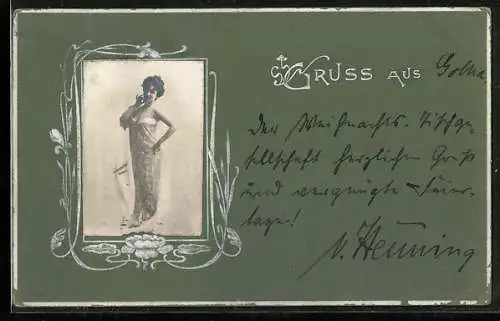 GRUSS AUS Gotha
Der Weihnachts-Tischge-
sellschaft herzlichen Gruß
und vergnügte Feier-
tage!
Henning